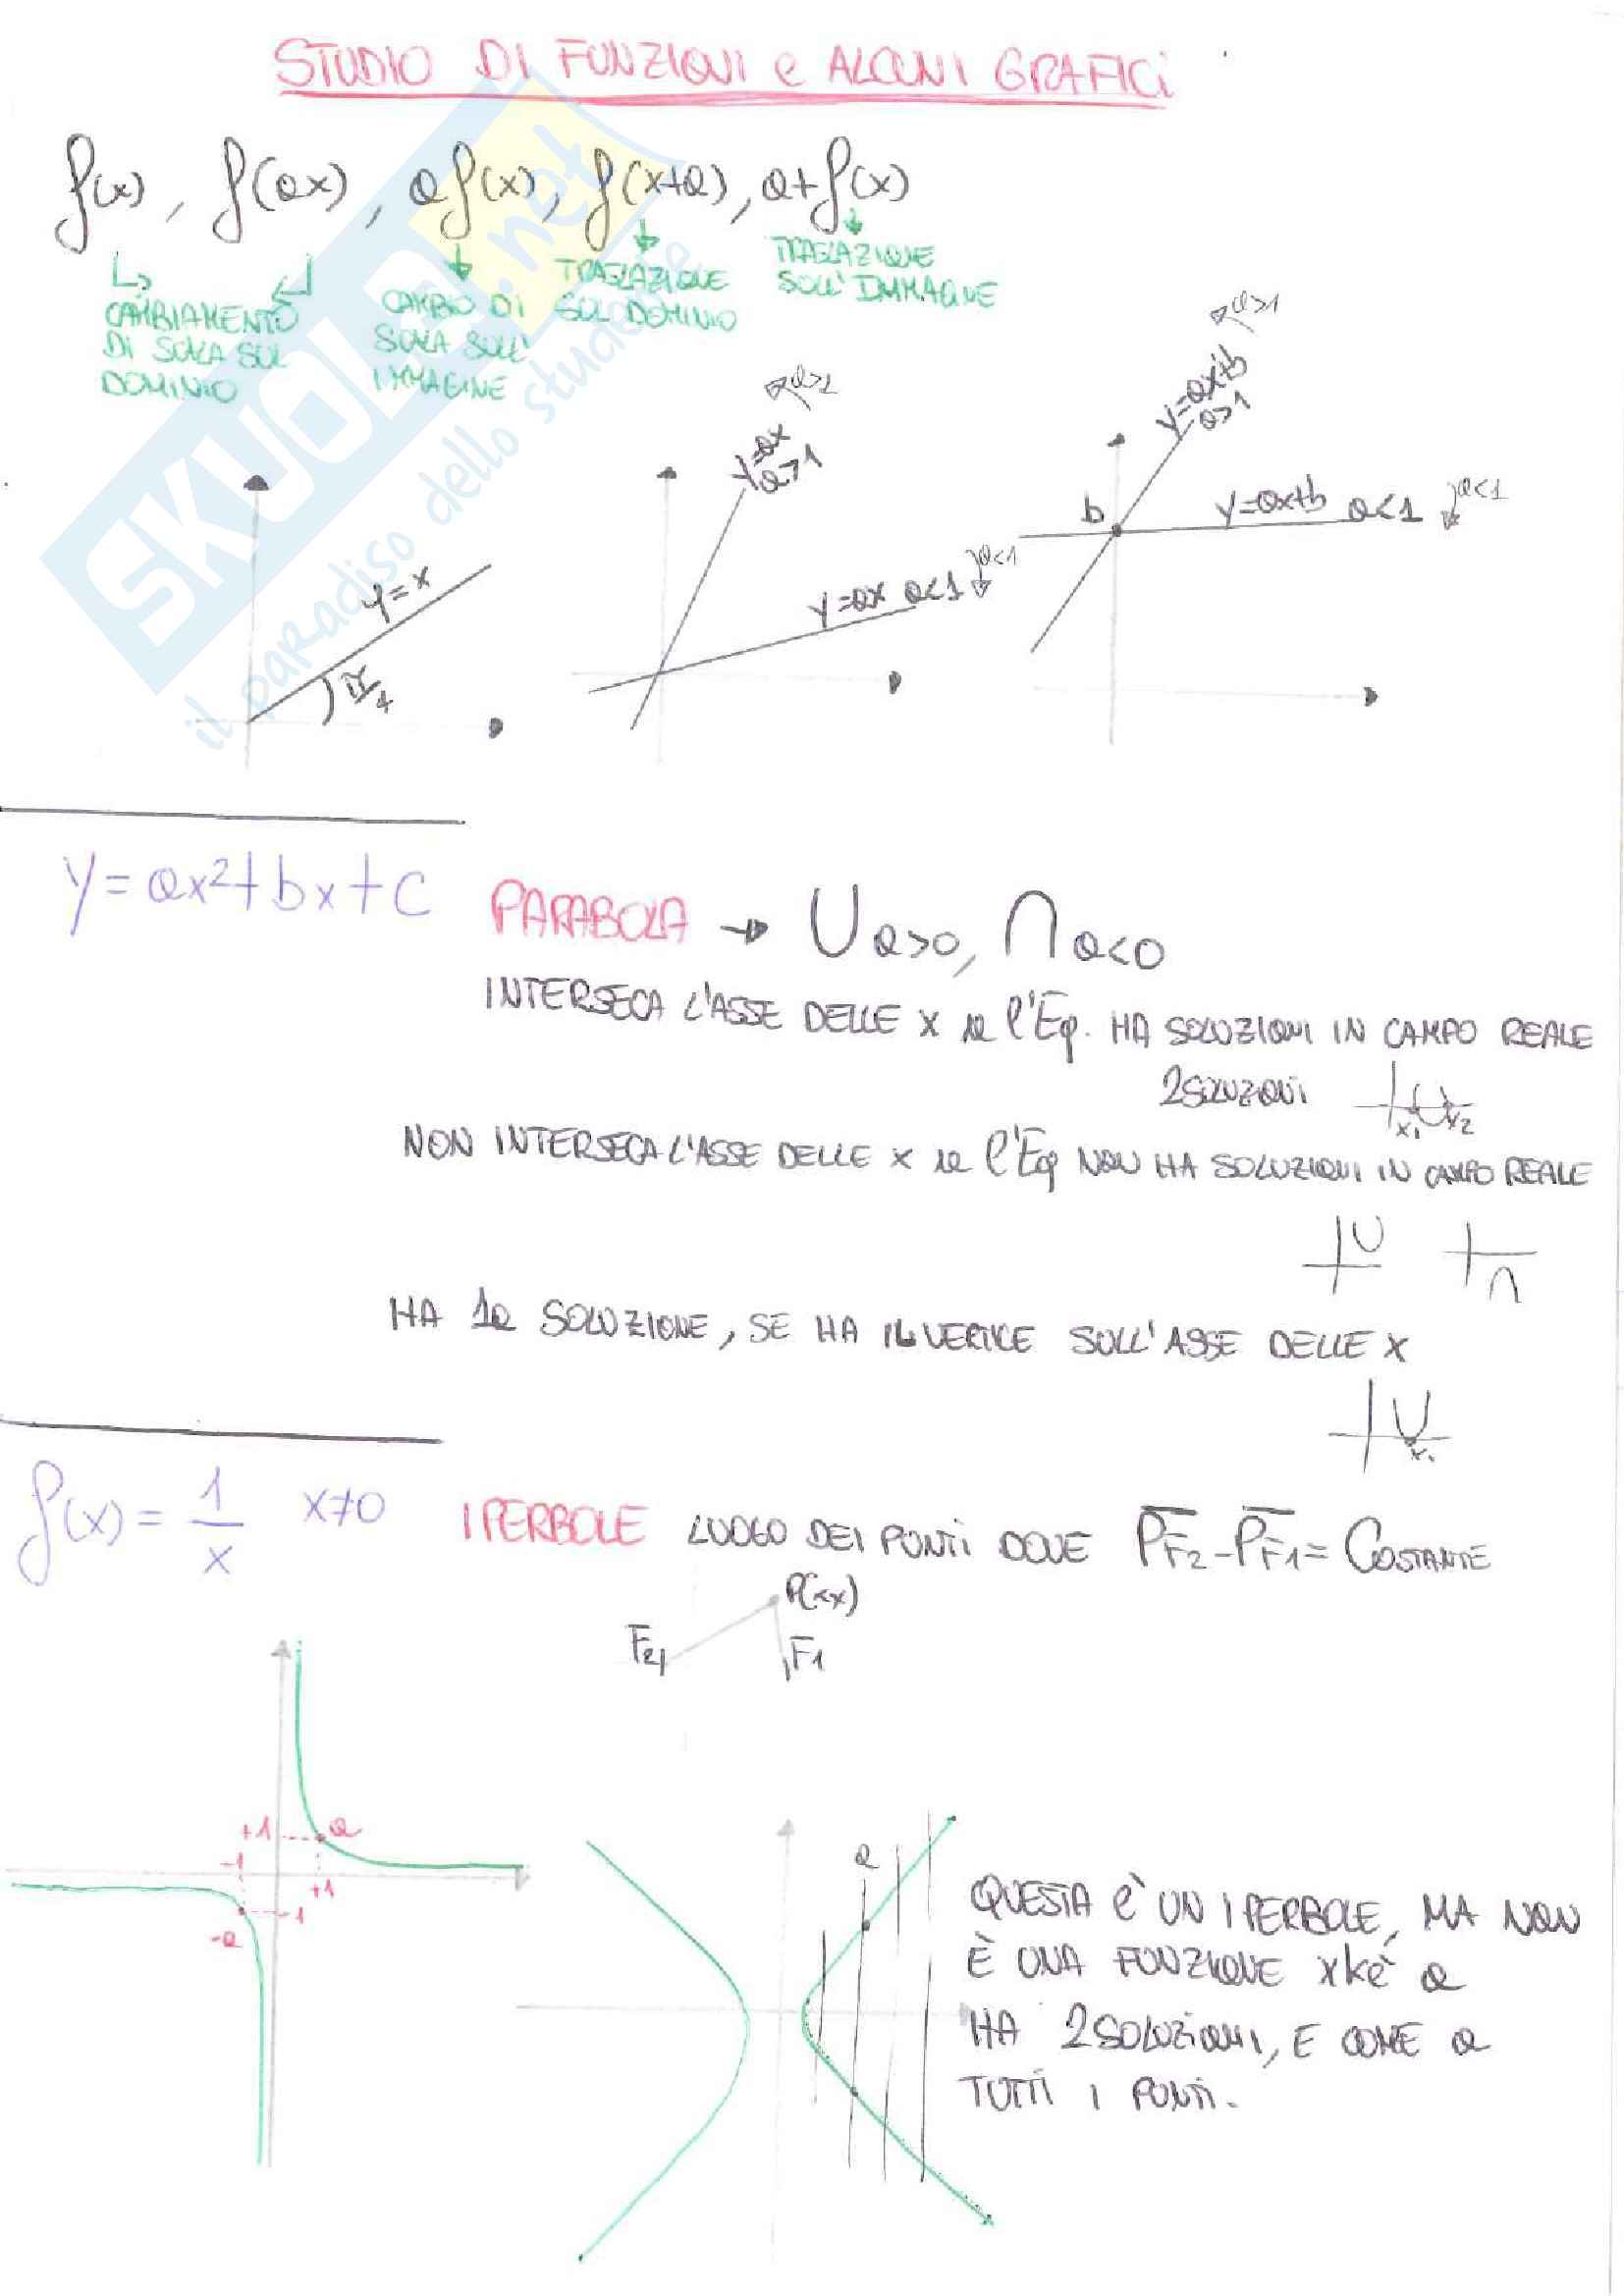 STUDIO DI FUNZIONI e ALCUNI GRAFICI
f(x), f(ax), af(x), f(x+a), a+f(x)
CAMBIAMENTO DI SCALA SUL DOMINIO
CAMBIO DI SCALA SULL' IMMAGINE
TRASLAZIONE SUL DOMINIO
TRASLAZIONE SULL'IMMAGINE
SKUOLA.net
il paradiso dello studente
y=x
π/4
y=ax
a>1
y=ax a<1
a<1
a>1
y=ax+b
a>1
b
y=ax+b a<1
a<1
y=ax²+bx+c
PARABOLA → ∪ a>0, ∩ a<0
INTERSECA L'ASSE DELLE x se l'Eq. HA SOLUZIONI IN CAMPO REALE
2 SOLUZIONI
x₁ x₂
NON INTERSECA L'ASSE DELLE x se l'Eq NON HA SOLUZIONI IN CAMPO REALE
HA 1a SOLUZIONE, SE HA IL VERTICE SULL'ASSE DELLE x
x₁
f(x) = 1/x x≠0
IPERBOLE LUOGO DEI PUNTI DOVE PF2-PF1= COSTANTE
F2
F1
+1
a
-1
+1
-1
-a
a
QUESTA è UN IPERBOLE, MA NON
È UNA FUNZIONE xkè a
HA 2 SOLUZIONI, E COME a
TUTTI I PUNTI.